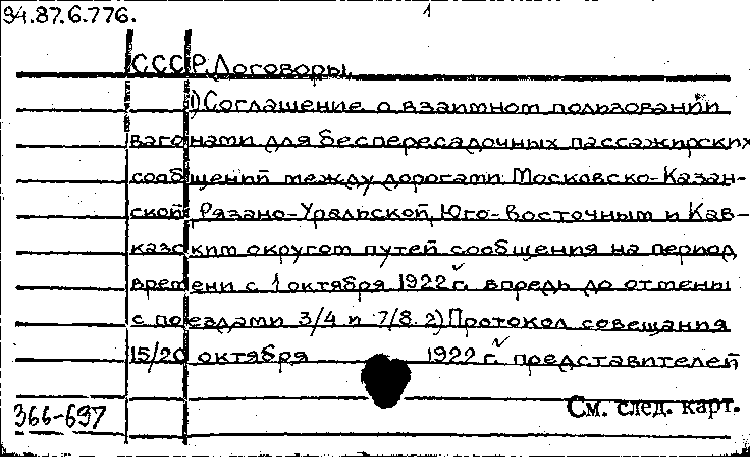 94.87.6.776. 1
СССР. Договоры.
1) Соглашение о взаимном пользовании
вагонами для беспересадочных пассажирских
сообщений между дорогами Московско-Казан-
ской, Рязано-Уральской, Юго-Восточным и Кав-
казским округом путей сообщения на период
времени с 1 октября 1922 г. впредь до отмены
с поездами 3/4 и 7/8. 2) Протокол совещания
15/20 октября 1922 г. представителей
366-697 См. след. карт.